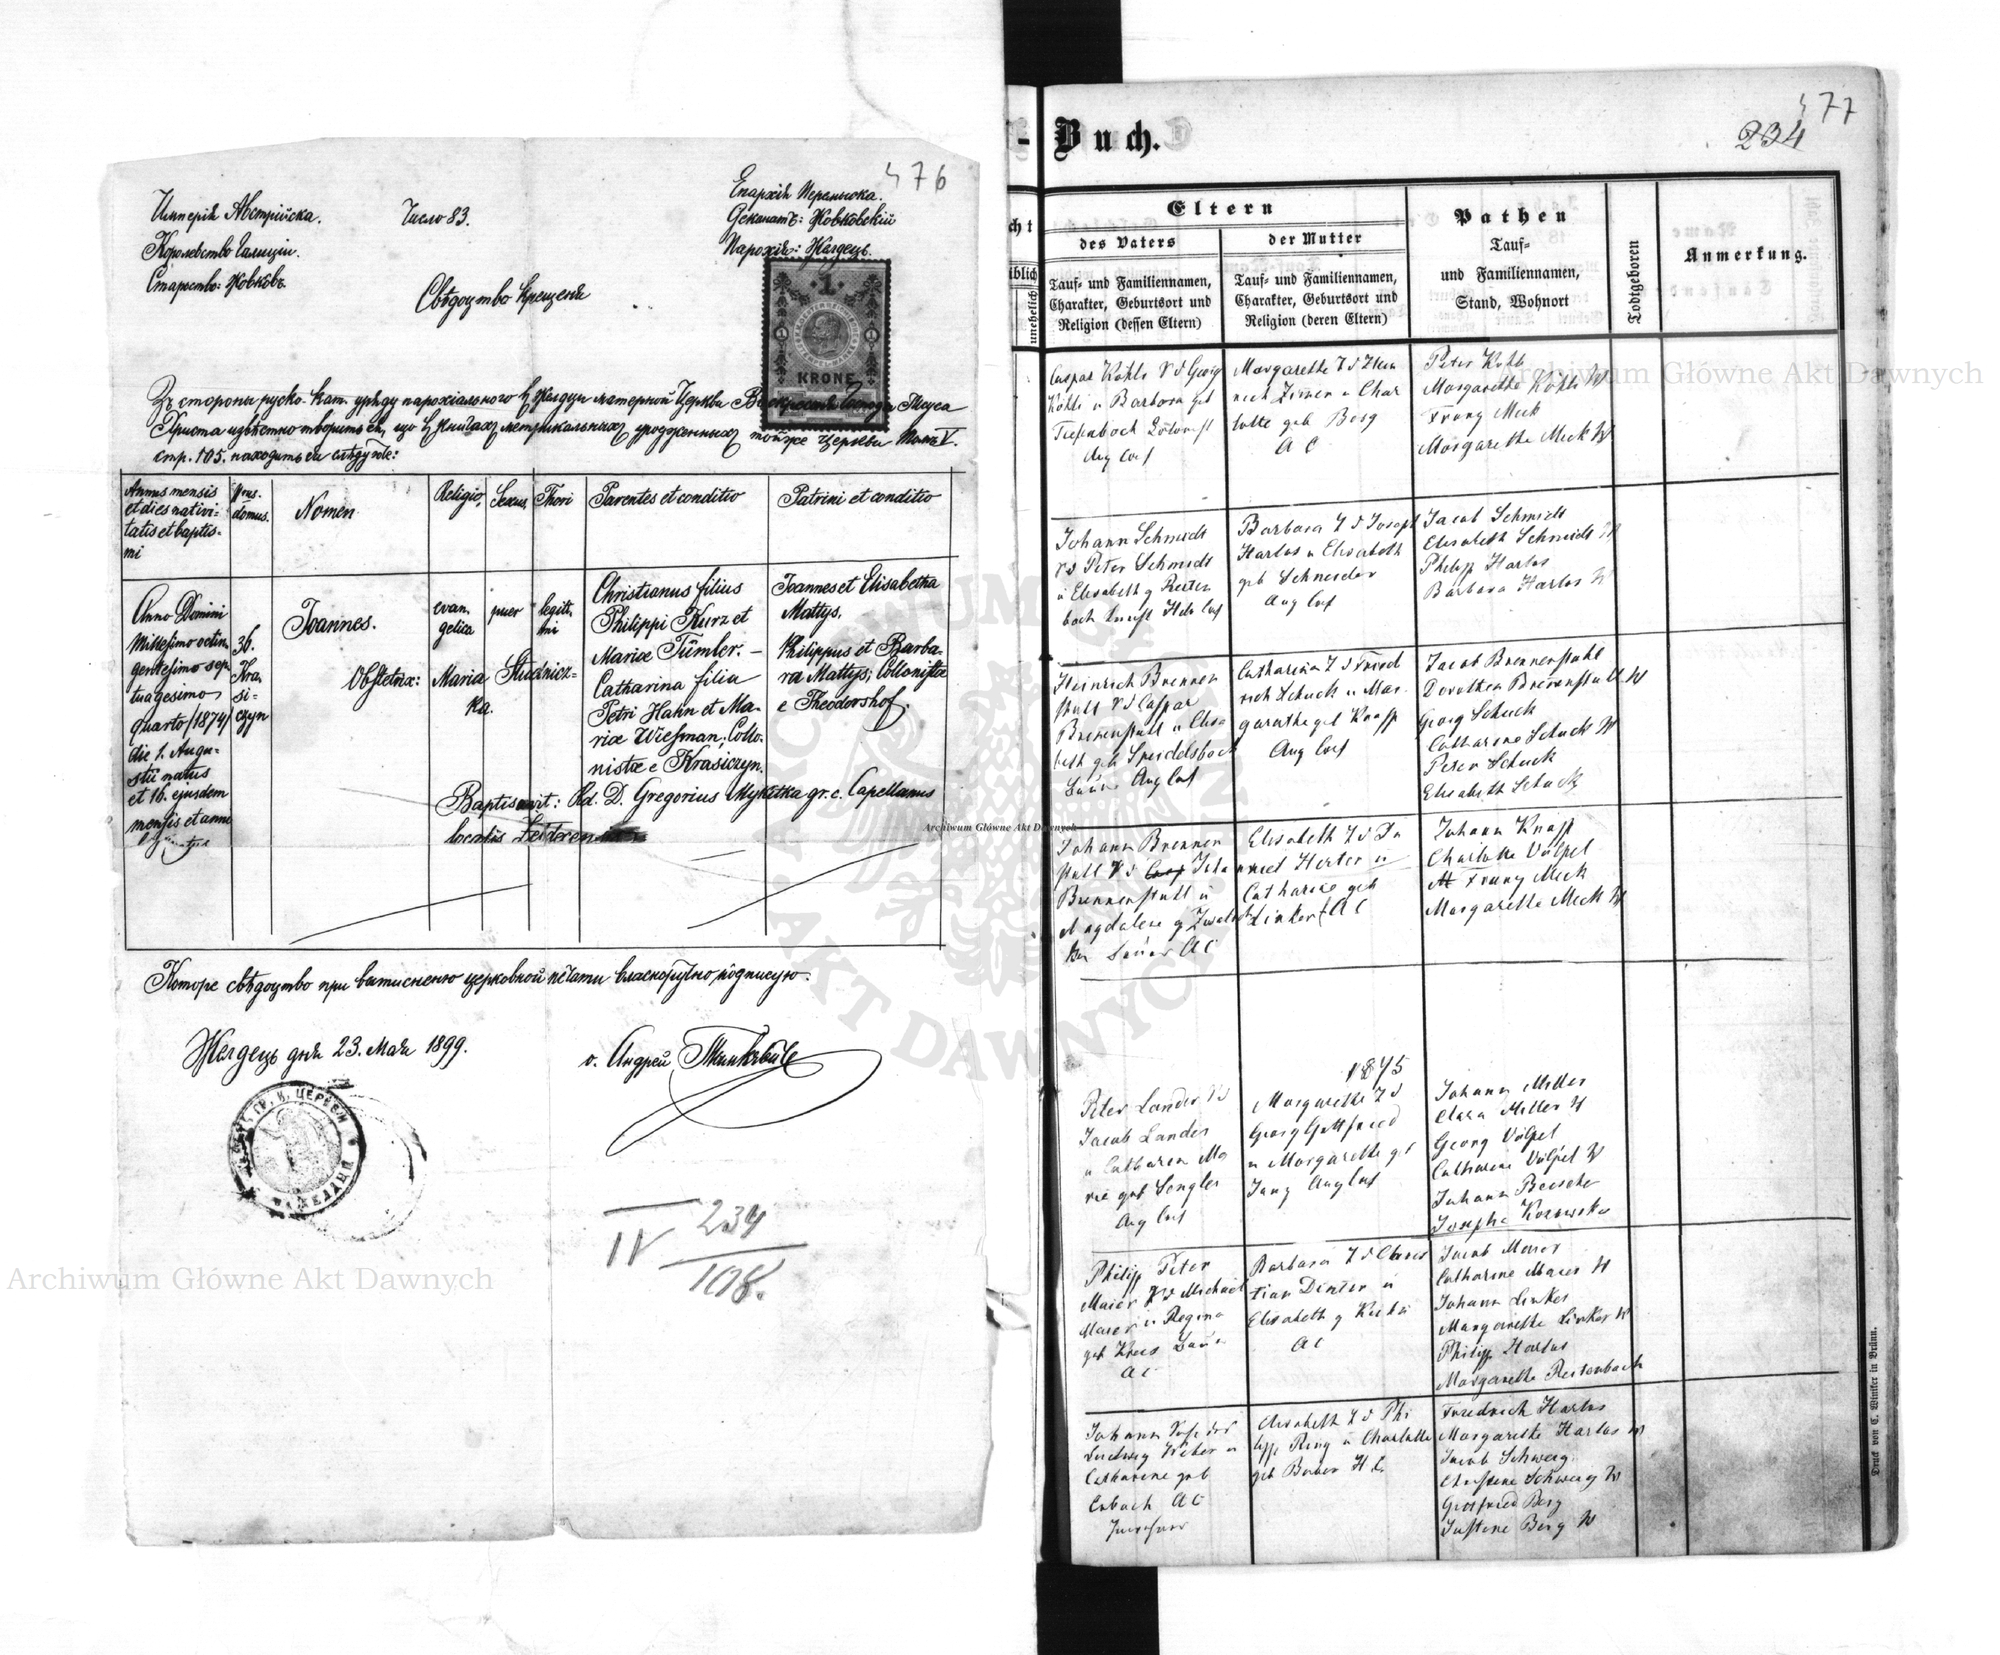 476
Имперія Австрійска.
Королевство Галиціи.
Староство: Жовковъ.
Число 83.
Епархія Перемыска.
Деканатъ: Жовковскій
Парохія: Желдець.
Свѣдоцтво крещенія
1
KRONE
Зъ стороны руско-кат. уряду парохіального в Желдци матерной Церкви Воскресенія Господа Ісуса
Христа извѣстно творить ся, що в книгах метрикальных уродженных тойже Церкви Томъ V.
стр. 105. находить ся слѣдующе:
Annus mensis
et dies nativi-
tatis et baptis-
mi
Nrus.
domus.
Nomen
Religio,
Sexus,
Thori
Parentes et conditio
Patrini et conditio
Anno Domini
Millesimo octin
gentesimo sep
tuagesimo
quarto (1874)
die 1. Augu-
stii natus
et 16. ejusdem
mensis et anni
36.
Kra-
si-
czyn
Joannes.
evan
gelica
puer
legiti
mi
Obstetrix: Maria Studnicz-
ka.
Christianus filius
Philippi Kurz et
Mariae Tümler. –
Catharina filia
Petri Hahn et Ma-
riae Wiesman; Collo-
nistae e Krasiczyn.
Joannes et Elisabetha
Mattys.
Philippus et Barba-
ra Mattys; Collonistae
e Theodorshof.
Baptisavit: Rd. D. Gregorius Mykitka gr. c. Capellanus
localis
Которе свѣдоцтво при вытисненю церковной печати власноручно подписую.
Желдець дня 23. Мая 1899.
о. Андрей
IV 234/108.
477
234
Buch.
Eltern
des Vaters
der Mutter
Tauf- und Familiennamen,
Charakter, Geburtsort und
Religion (dessen Eltern)
Tauf- und Familiennamen,
Charakter, Geburtsort und
Religion (deren Eltern)
Pathen
Tauf-
und Familiennamen,
Stand, Wohnort
Todtgeboren
Anmerkung.
unehelich
Caspar Kohli S d Georg
Kohli u Barbara geb
Margarethe T d Hein
rich Zimer u Char
lotte geb Berg
A C
Peter Kolb
Margarethe Kohli W
Franz Meck
Margarethe Meck W
Johann Schmidt
S d Peter Schmidt
u Elisabeth g Reiten
bach
Barbara T d Joseph
Harlas u Elisabeth
geb Schneider
Aug Conf
Jacob Schmidt
Elisabeth Schmidt W
Philipp Harlas
Barbara Harlas W
Heinrich Brennen
stull S d Caspar
Brenenstull u Elisa
beth geb Speidelsbach
Aug Conf
Catharina T d Fried
rich Schuck u Mar
garethe geb Knaff
Aug Conf
Jacob Brennenstuhl
Dorothea Brenenstull W
Georg Schuck
Catharine Schuck W
Peter Schuck
Elisabeth Schuck
Johann Brennen
stull S d Joha
Brennenstull u
Magdalene g
A C
Elisabeth T d Da
niel Herter u
Catharine geb
Linker A C
Johann Knaff
Charlotte Völpel
Franz Meck
Margarethe Meck W
1875
Peter Landis S d
Jacob Landis
u Catharina Ma
rie geb Sengler
Aug Conf
Margarethe T d
Georg Gottfried
u Margarethe ge
Jung Aug Conf
Johann Miller
Clara Miller W
Georg Völpel
Catharine Völpel W
Johann
Josepha
Philipp Peter
Maier S d Michael
Maier u Regina
geb Kreis
A C
Barbara T d Chris
tian Dinter u
Elisabeth g
A C
Jacob Maier
Catharine Maier W
Johann Linker
Margarethe Linker W
Philipp Harlas
Margarethe Reitenbach
Johann
Ludwig Weber u
Catharine geb
A C
Elisabeth T d Phi
lipp Ring u Charlotte
geb
Friedrich Harlas
Margarethe Harlas W
Jacob Schweig
Christine Schweig W
Gottfried Berg
Justine Berg W
Druck von C. Winiker in Brünn.
Archiwum Główne Akt Dawnych
Archiwum Główne Akt Dawnych
Archiwum Główne Akt Dawnych